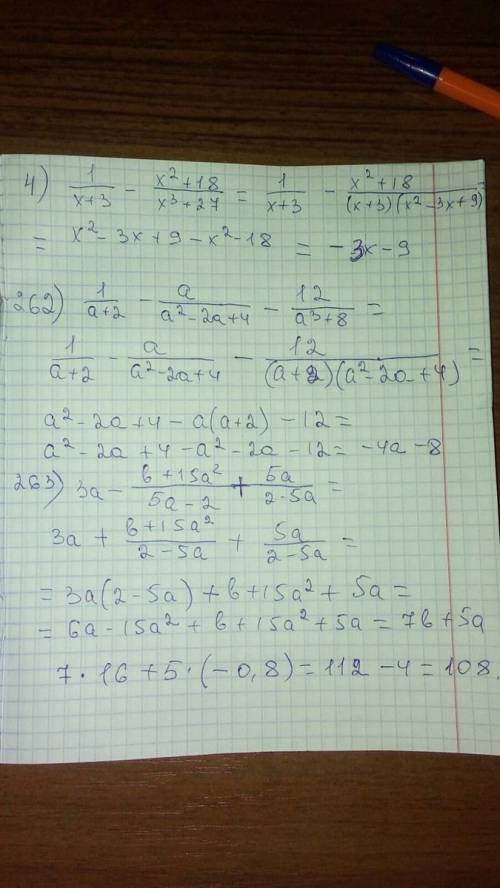 4) 1/(x+3) - (x²+18)/(x³+27) = 1/(x+3) - (x²+18)/((x+3)(x²-3x+9)) =
= x²-3x+9-x²-18 = -3x-9
262) 1/(a+2) - a/(a²-2a+4) - 12/(a³+8) =
1/(a+2) - a/(a²-2a+4) - 12/((a+2)(a²-2a+4)) =
a²-2a+4-a(a+2)-12=
a²-2a+4-a²-2a-12=-4a-8
263) 3a - (b+15a²)/(5a-2) + 5a/(2-5a) =
3a + (b+15a²)/(2-5a) + 5a/(2-5a) =
= 3a(2-5a)+b+15a²+5a=
= 6a-15a²+b+15a²+5a=7b+5a
7·16+5·(-0,8)=112-4=108.